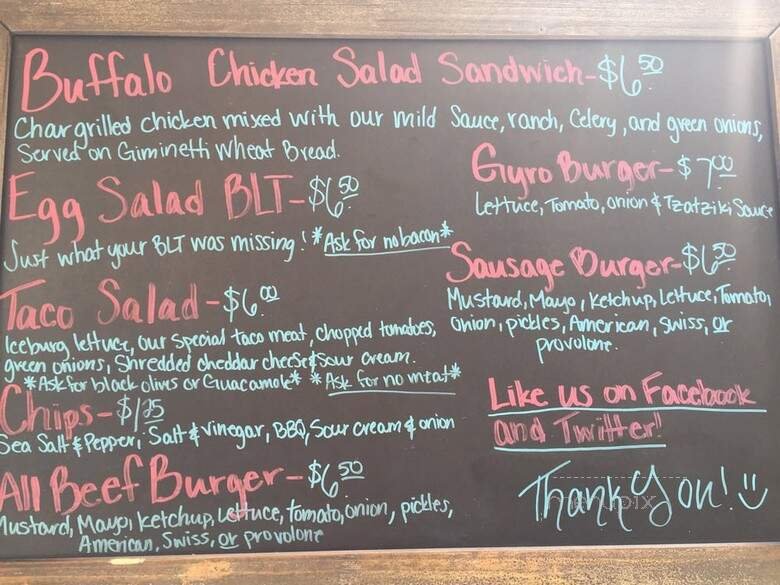 Buffalo Chicken Salad Sandwich-$6.50
Char grilled chicken mixed with our mild Sauce, ranch, Celery, and green onions,
Served on Giminetti Wheat Bread.
Egg Salad BLT-$6.50
Just what your BLT was missing! *Ask for no bacon*
Taco Salad-$6.00
Iceburg lettuce, our special taco meat, chopped tomatoes,
green onions, Shredded cheddar cheese & sour cream.
*Ask for black olives or Guacamole* *Ask for no meat*
Chips-$1.25
Sea Salt & Pepper, Salt & Vinegar, BBQ, Sour cream & onion
All Beef Burger-$6.50
Mustard, Mayo, Ketchup, Lettuce, tomato, onion, pickles,
American, Swiss, or provolone
Gyro Burger-$7.00
Lettuce, Tomato, onion & Tzatziki Sauce
Sausage Burger-$6.50
Mustard, Mayo, Ketchup, Lettuce, Tomato,
Onion, pickles, American, Swiss, or
provolone.
Like us on Facebook
and Twitter!
Thank You!